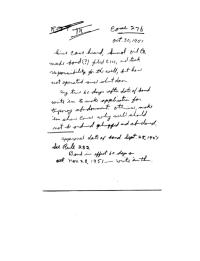 Case 276
Oct. 30, 1951
Since Case heard, Oil Co.
made bond (?) filed C111, and took
responsibility for the well, but has
not operated and shut down.
60 days after date of bond
write 'em to make application for
temporary abandonment otherwise, make
'em show cause why well should
not be ordered plugged and abandoned.
approved date of bond Sept 28, 1951
See Rule 202
Bond in effect 60 days
Nov 28, 1951 — write then